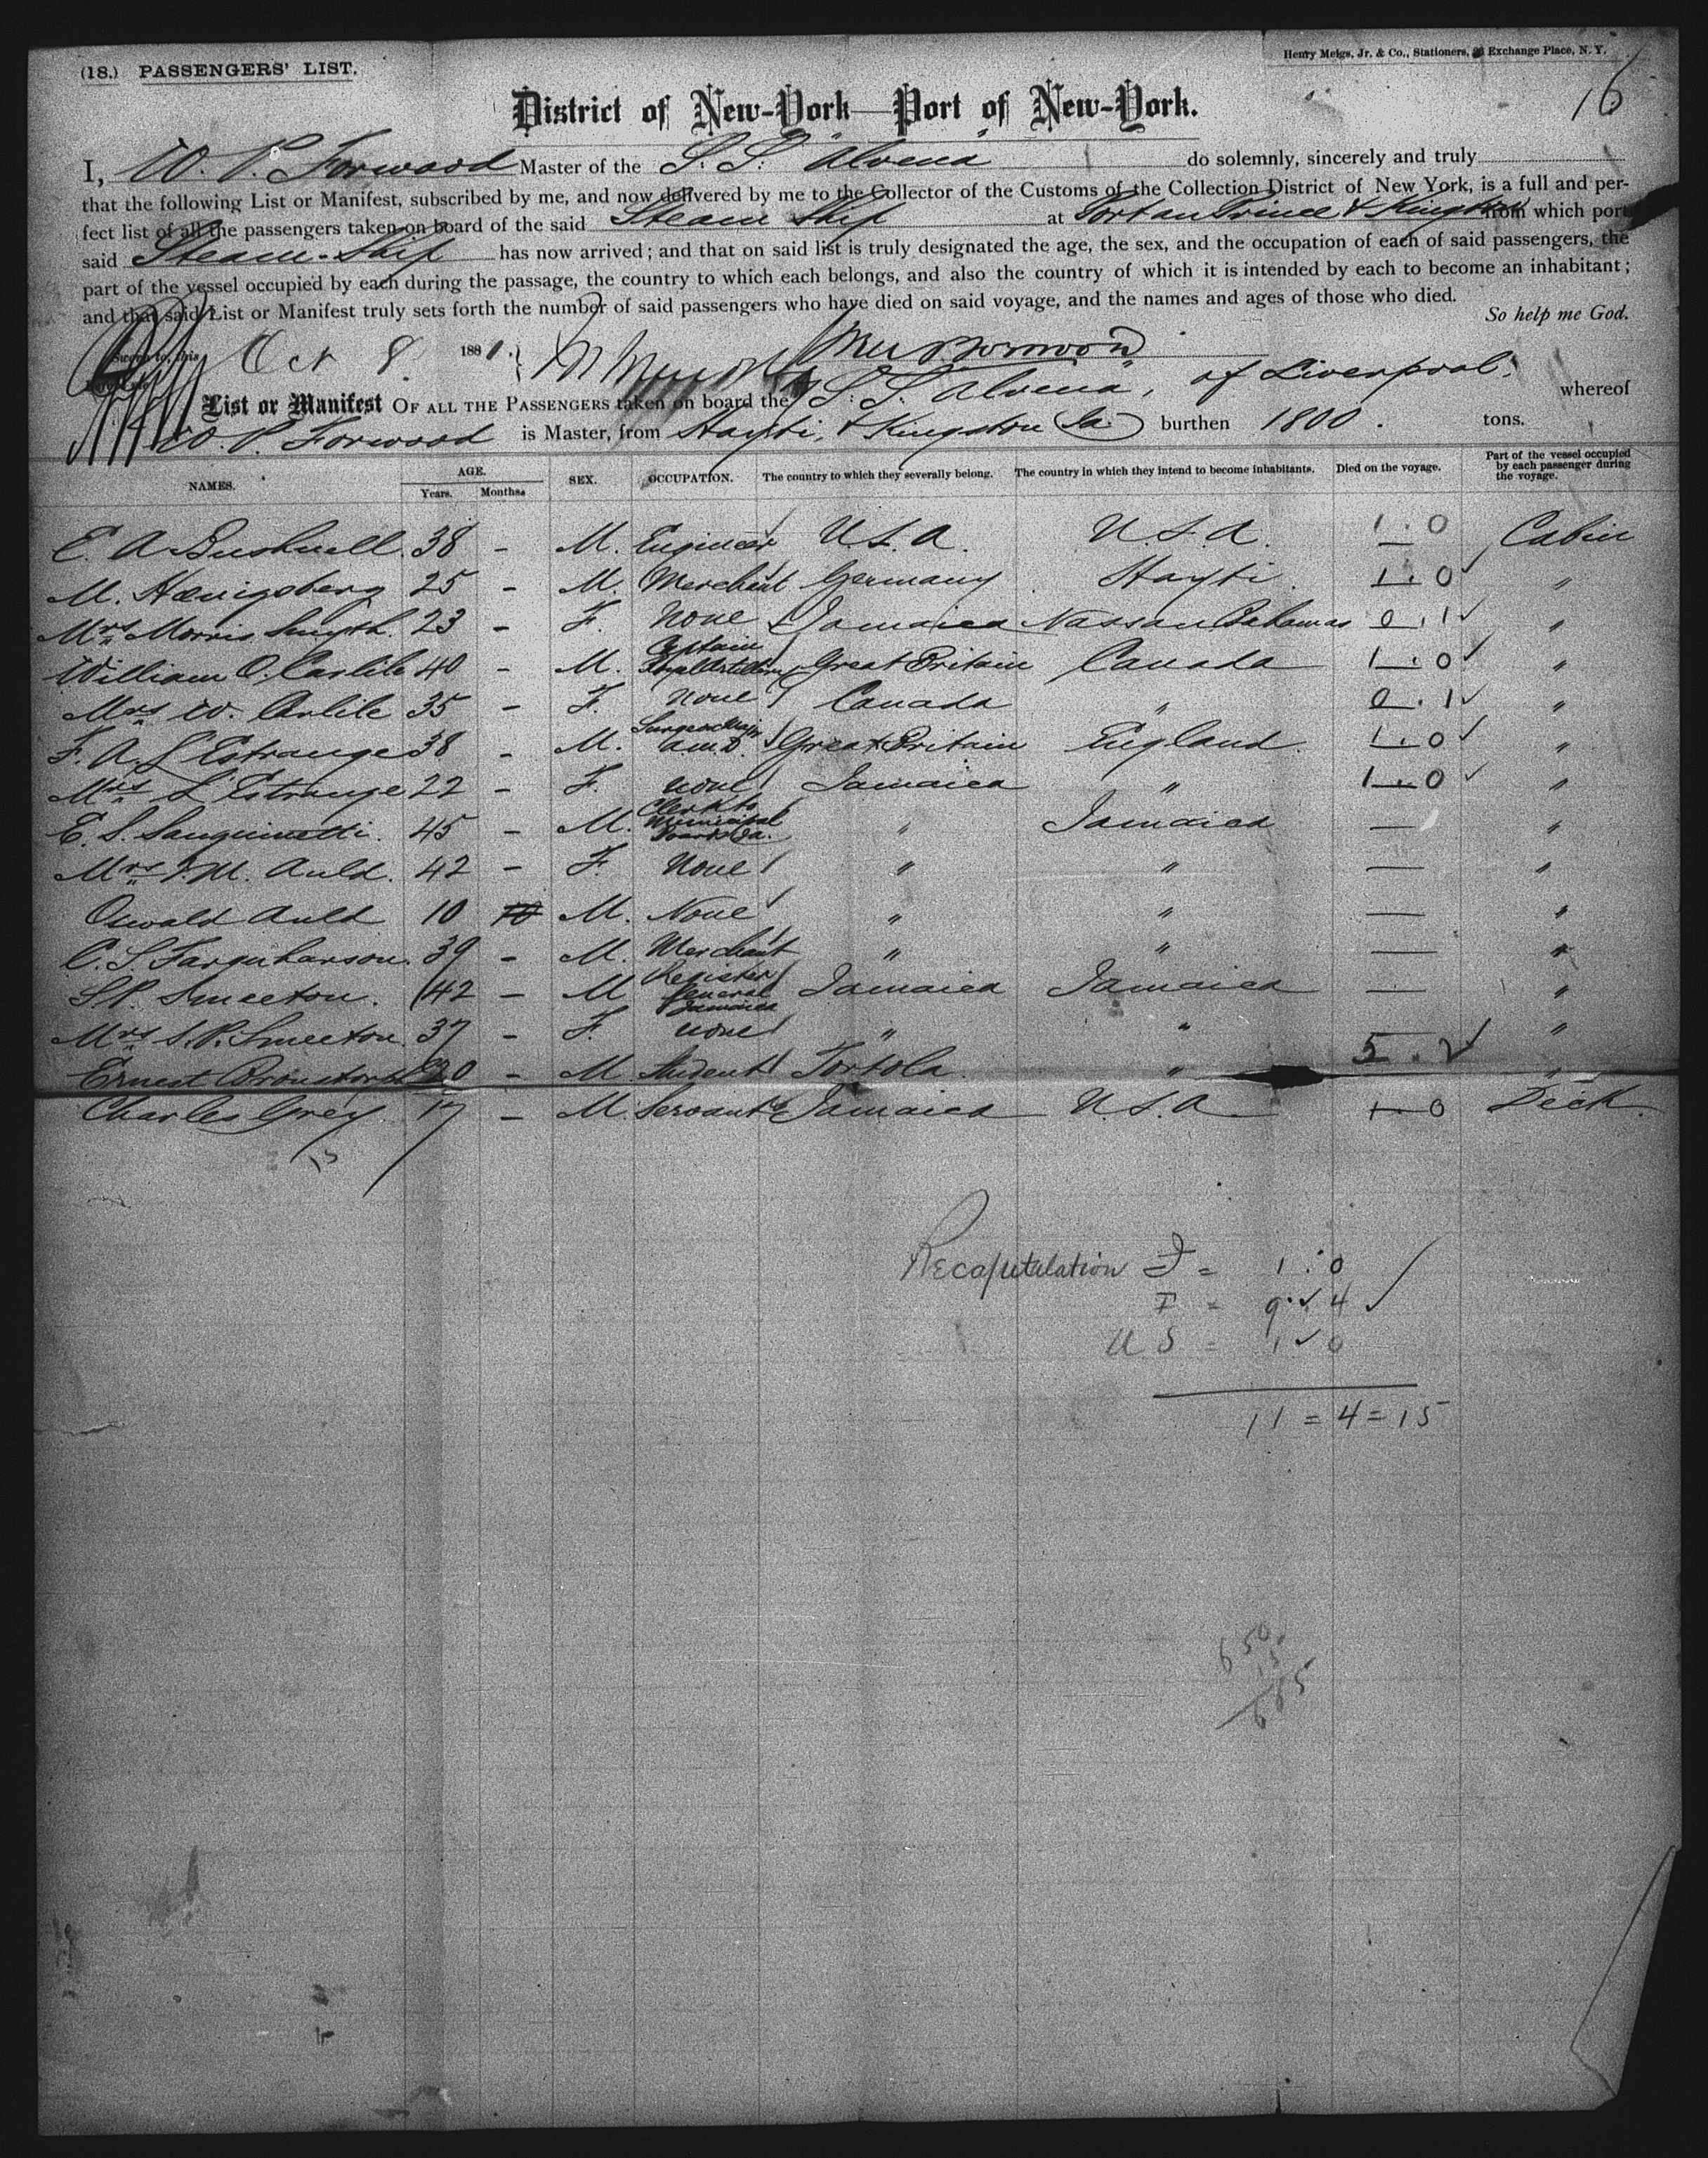 (18.) PASSENGERS' LIST.
Henry Meigs, Jr. & Co., Stationers, Exchange Place, N. Y.
16
District of New-York—Port of New-York.
I, W. P. Forwood Master of the S. S. "Alvena" do solemnly, sincerely and truly
that the following List or Manifest, subscribed by me, and now delivered by me to the Collector of the Customs of the Collection District of New York, is a full and per-
fect list of all the passengers taken on board of the said Steam Ship at Port au Prince & Kingston from which port
said Steam-Ship has now arrived; and that on said list is truly designated the age, the sex, and the occupation of each of said passengers, the
part of the vessel occupied by each during the passage, the country to which each belongs, and also the country of which it is intended by each to become an inhabitant;
and that said List or Manifest truly sets forth the number of said passengers who have died on said voyage, and the names and ages of those who died.
So help me God.
Sworn to, this Oct 8 1881.
List or Manifest OF ALL THE PASSENGERS taken on board the S. S. "Alvena", of Liverpool, whereof
W. P. Forwood is Master, from Hayti, & Kingston Ja. burthen 1800. tons.
NAMES. AGE. Years. Months. SEX. OCCUPATION. The country to which they severally belong. The country in which they intend to become inhabitants. Died on the voyage. Part of the vessel occupied by each passenger during the voyage.
E. A Bushnell 38 - M. Engineer U.S.A. U.S.A. 1.0 Cabin
M. Hænigsberg 25 - M. Merchant Germany Hayti 1.0 "
Mrs Morris Smyth. 23 - F. None Jamaica Nassau Bahamas 0.1 "
William O. Carlile 40 - M. Captain Royal Artillery Great Britain Canada 1.0 "
Mrs W. Carlile 35 - F. None Canada " 0.1 "
F. A. L'Estrange 38 - M. Surgeon Major A.M.D. Great Britain England. 1.0 "
Mrs L'Estrange 22 - F. None Jamaica " 1.0 "
E. S. Sanguinetti. 45 - M. Clerk to Municipal Board Ja. " Jamaica — "
Mrs J. M. Auld. 42 - F. None " " — "
Oswald Auld 10 10 M. None " " — "
C. S. Farquharson. 39 - M. Merchant " " — "
S. P. Smeeton. 42 - M Register General Jamaica Jamaica Jamaica — "
Mrs S. P. Smeeton. 37 - F. None " " "
5.2
Ernest 20 - M Student Tortola " "
Charles Grey 17 - M. Servant Jamaica U.S.A. 1-0 Deck.
15
Recapitulation = 1.0
F = 9. 4
U S = 1 0
11 = 4 = 15
650
15
665